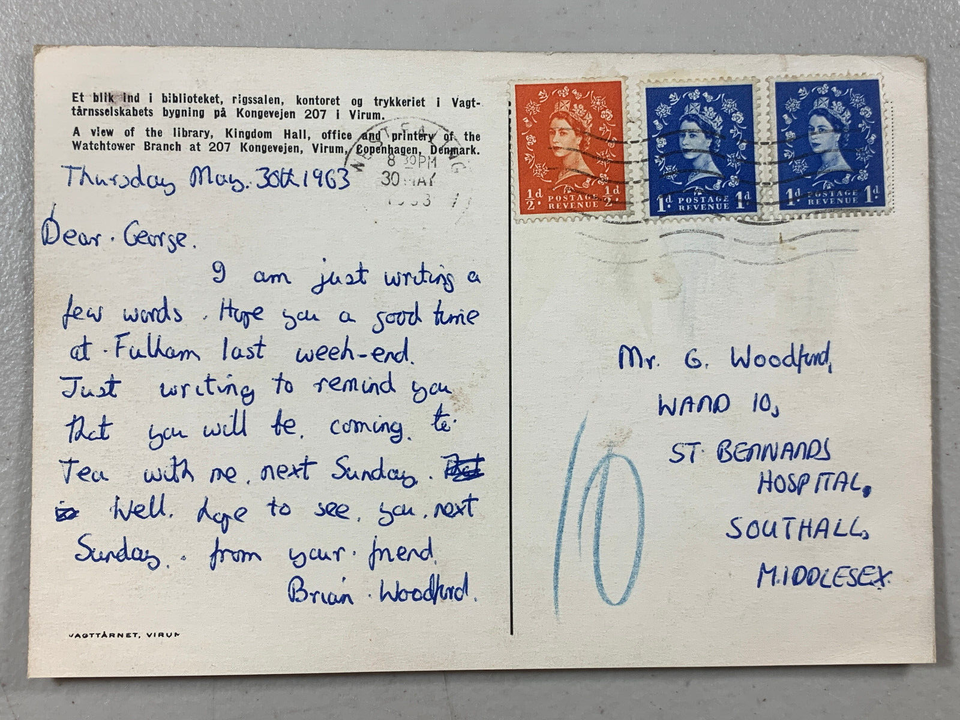 Et blik ind i biblioteket, rigssalen, kontoret og trykkeriet i Vagt-
tårnsselskabets bygning på Kongevejen 207 i Virum.
A view of the library, Kingdom Hall, office and printery of the
Watchtower Branch at 207 Kongevejen, Virum, Copenhagen, Denmark.
Thursday May. 30th 1963
Dear. George.
I am just writing a
few words. Hope you a good time
at. Fulham last week-end.
Just writing to remind you
that you will be. coming. to
Tea with me. next Sunday.
Well. hope to see. you. next
Sunday. from your. friend.
Brian. Woodford.
VAGTTÅRNET, VIRUM
8 30PM
30 MAY
1963
½d POSTAGE ½d
REVENUE
1d POSTAGE 1d
REVENUE
1d POSTAGE 1d
REVENUE
Mr. G. Woodford,
WARD 10,
ST BERNARDS
HOSPITAL,
SOUTHALL,
MIDDLESEX.
10